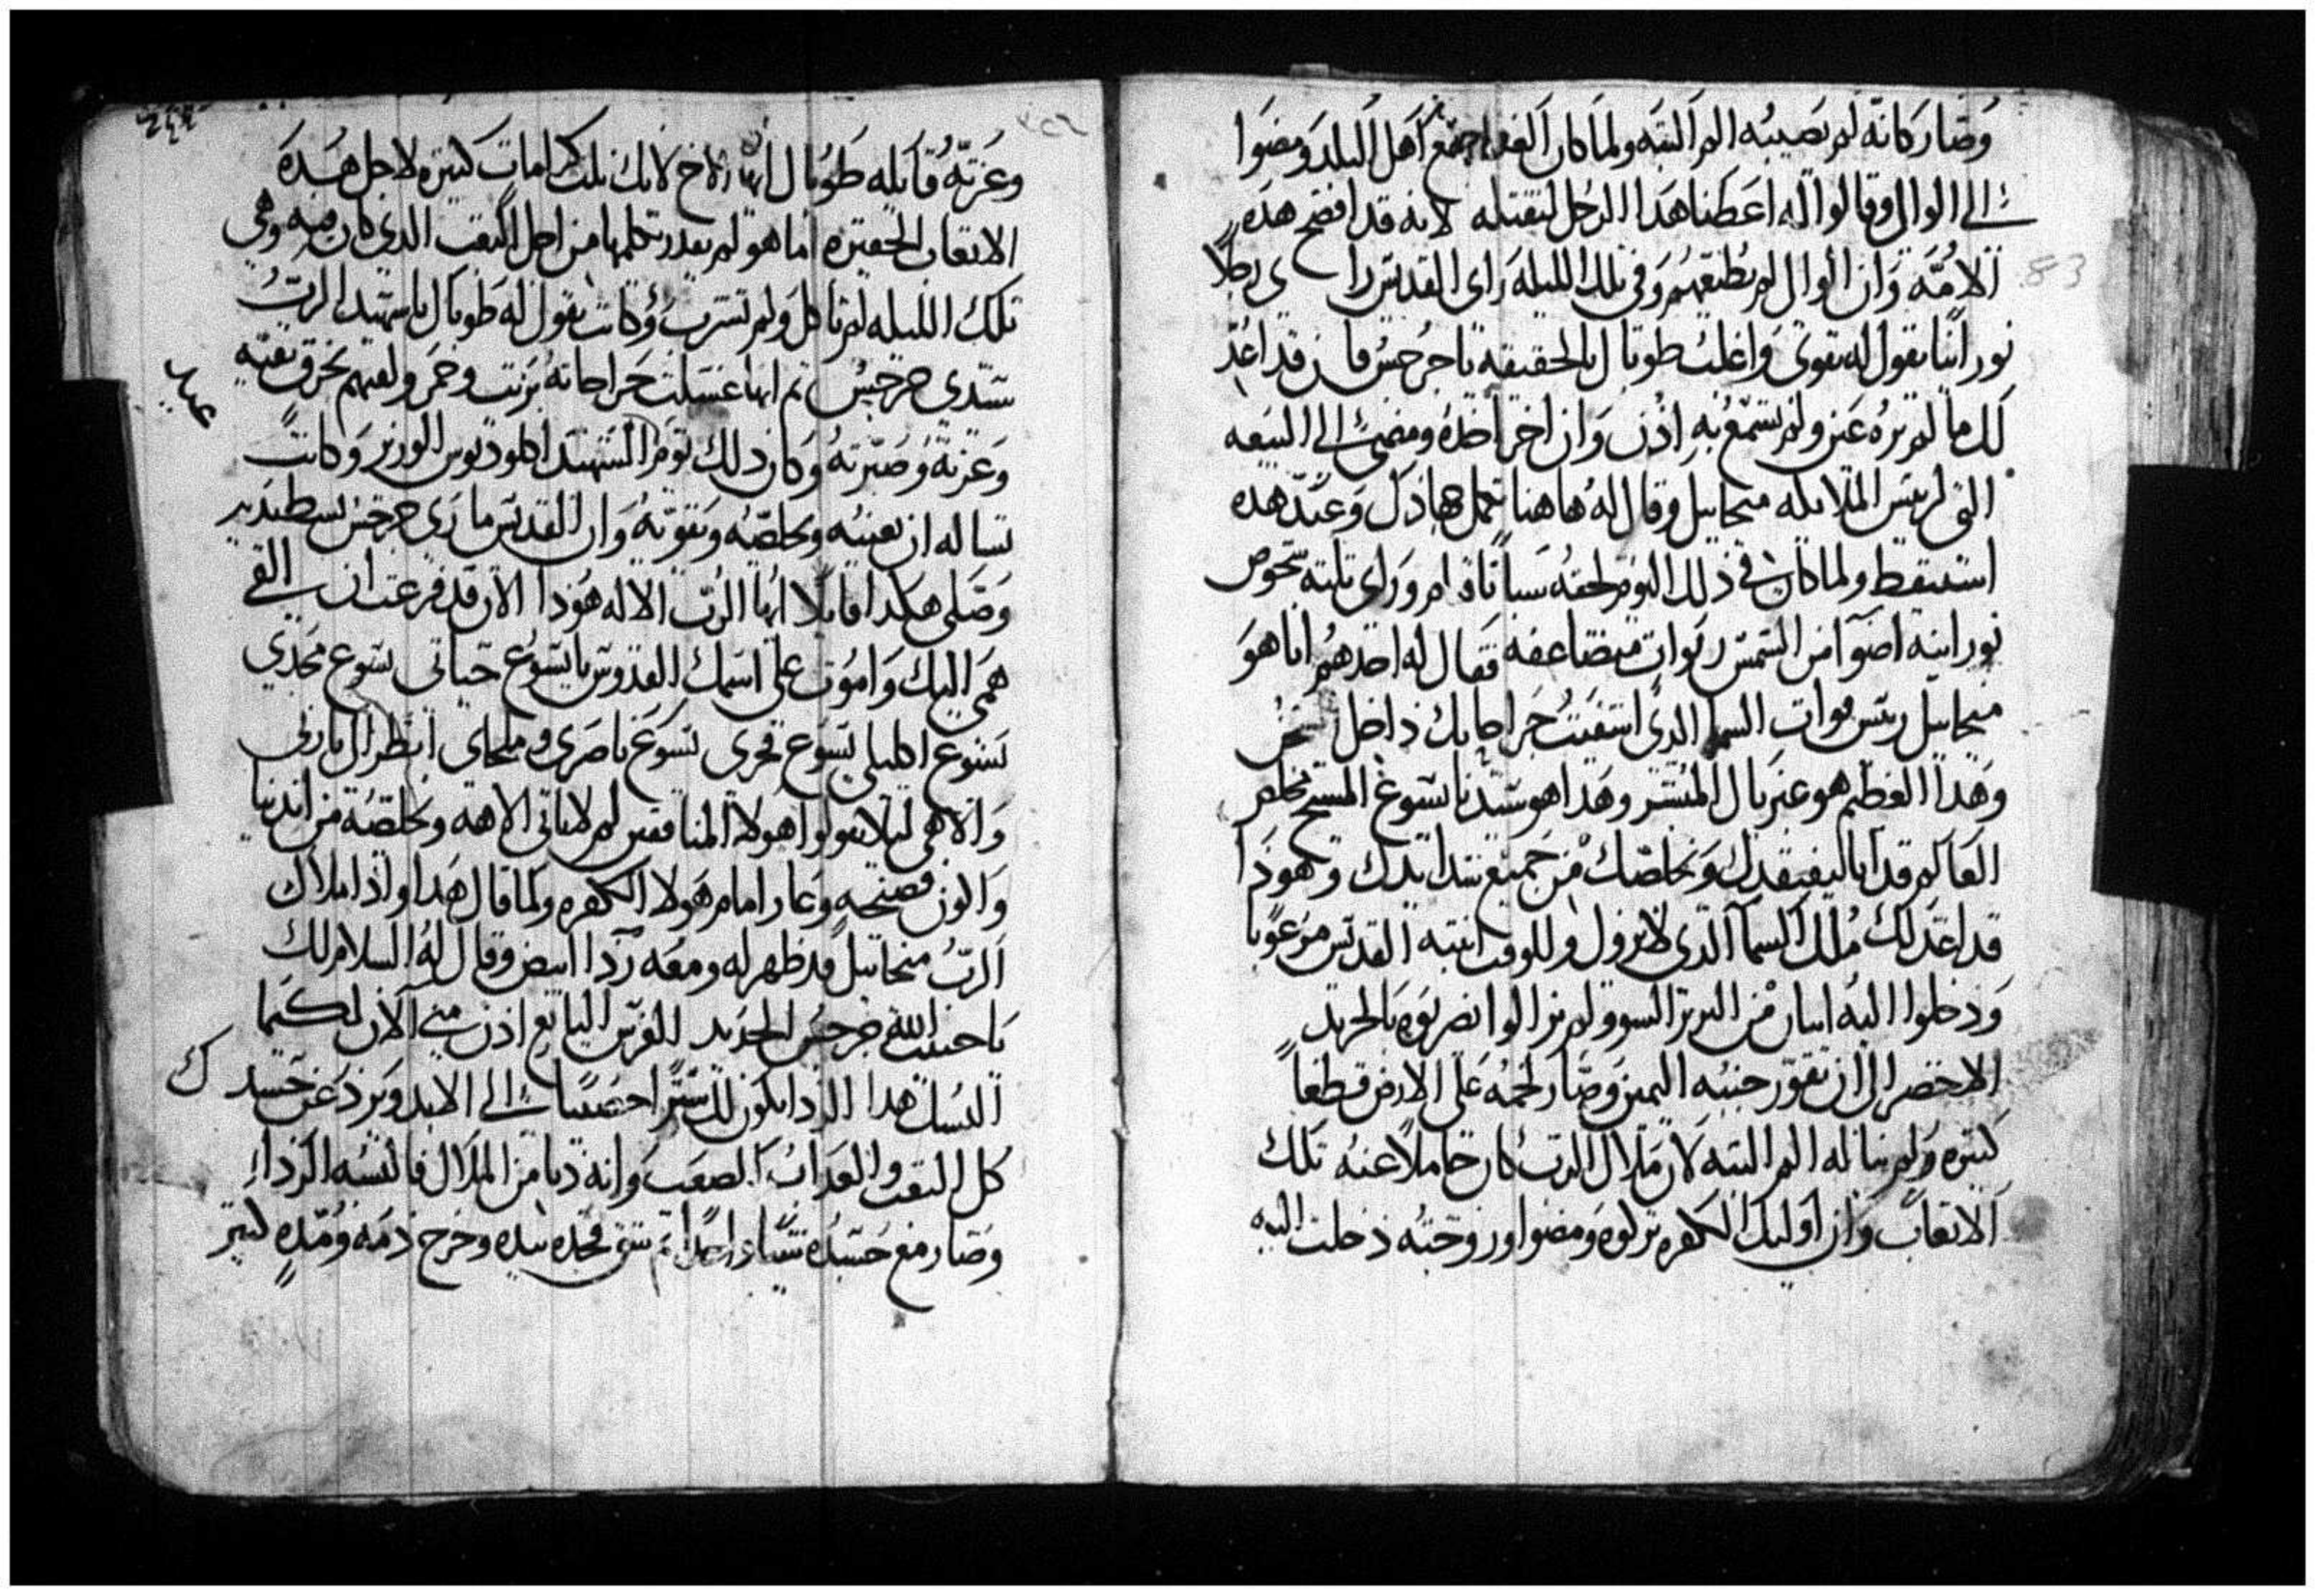 وصار كانه لم تصيبه الم البته ولما كان الغد اجتمع اهل البلد ومضوا
الى الوالى وقالوا له اعطنا هدا الرجل لنقتله لانه قد افضح هده
الامه وان الوال لم يطيعهم وفى تلك الليله راى القديس را ى رجلا
نورانيا يقول له تقوى واغلب طوباك بالحقيقه ياجرجس فان قد اعد
لك ما لم تره عين ولم تسمع به ادن وان اخر اخده ومضى الى البيعه
التى لريس الملايكه ميخاييل وقال له هاهنا تكمل جهادك وعند هده
استيقظ ولما كان فى ذلك اليوم لحقه سباتا وراى تلته شخوص
نورانيه اضوا من الشمس ربوات متضاعفه فقال له احدهم انا هو
ميخاييل ريس قوات السما الدى اشفيت جراحاتك داخل
وهدا العظيم هو غبريال المبشر وهدا هو سيدنا يسوع المسيح مخلص
العالم قد اتا ليفتقدك ويخلصك من جميع شدايدك وهودا
قد اعد لك ملك السما الدى لا يزول وللوقت انتبه القديس مرعوبا
ودخلوا اليه البربر السوو ولم يزالوا يضربوه بالجريد
الاخضر الى ان تقور جنبه اليمين وصار لحمه على الارض قطعا
كتيره ولم يناله الم البته لان ملاك الرب كان حاملا عنه تلك
الاتعاب وان اوليك الكفره تركوه ومضوا وزوجته دخلت اليه
83
وعزته قايله طوباك ايها الاخ لانك نلت كرامات كتيره لاجل هده
الاتعاب الحقيره اما هو لم يقدر يكلمها من اجل التعب الدى كان فيه وهى
تلك الليله لم تاكل ولم تشرب وكانت تقول له طوباك ياشهيد الرب
سيدى جرجس تم انها غسلت جراحاته بزيت وخمر ولفتهم بخرق نقيه
وعزته وصبرته وكان دلك يوم الشهيد اكلوديوس الوزير وكانت
تساله ان يعينه ويخلصه ويقويه وان القديس مارى جرجس بسط يديه
وصلى هكدا قايلا ايها الرب الاله هودا الان قد فرغت ان القى
همى اليك واموت على اسمك القدوس يايسوع حياتى يسوع مجدى
يسوع اكليلى يسوع فخرى يسوع ناصرى وملجاى انظر الى يا ربى
والاهى ليلا يقولوا هولا المنافقين لم لا ياتى الاهه ويخلصه من ايدينا
واكون فضيحه وعار امام هولا الكفره ولما قال هدا وادا ملاك
الرب ميخاييل قد ظهر له ومعه ردا ابيض وقال له السلام لك
ياحبيب الله جرجس الجديد الغرس اليانع ادن منى الان لكيما
البسك هدا الردا يكون لك سترا حصينا الى الابد ويرد عن جسدك
كل التعب والعداب الصعب وانه دنا من الملاك فالبسه الردا
وصار مع جسده شيا واحدا تم شق فخده بيده وخرج دمه ومده كتير